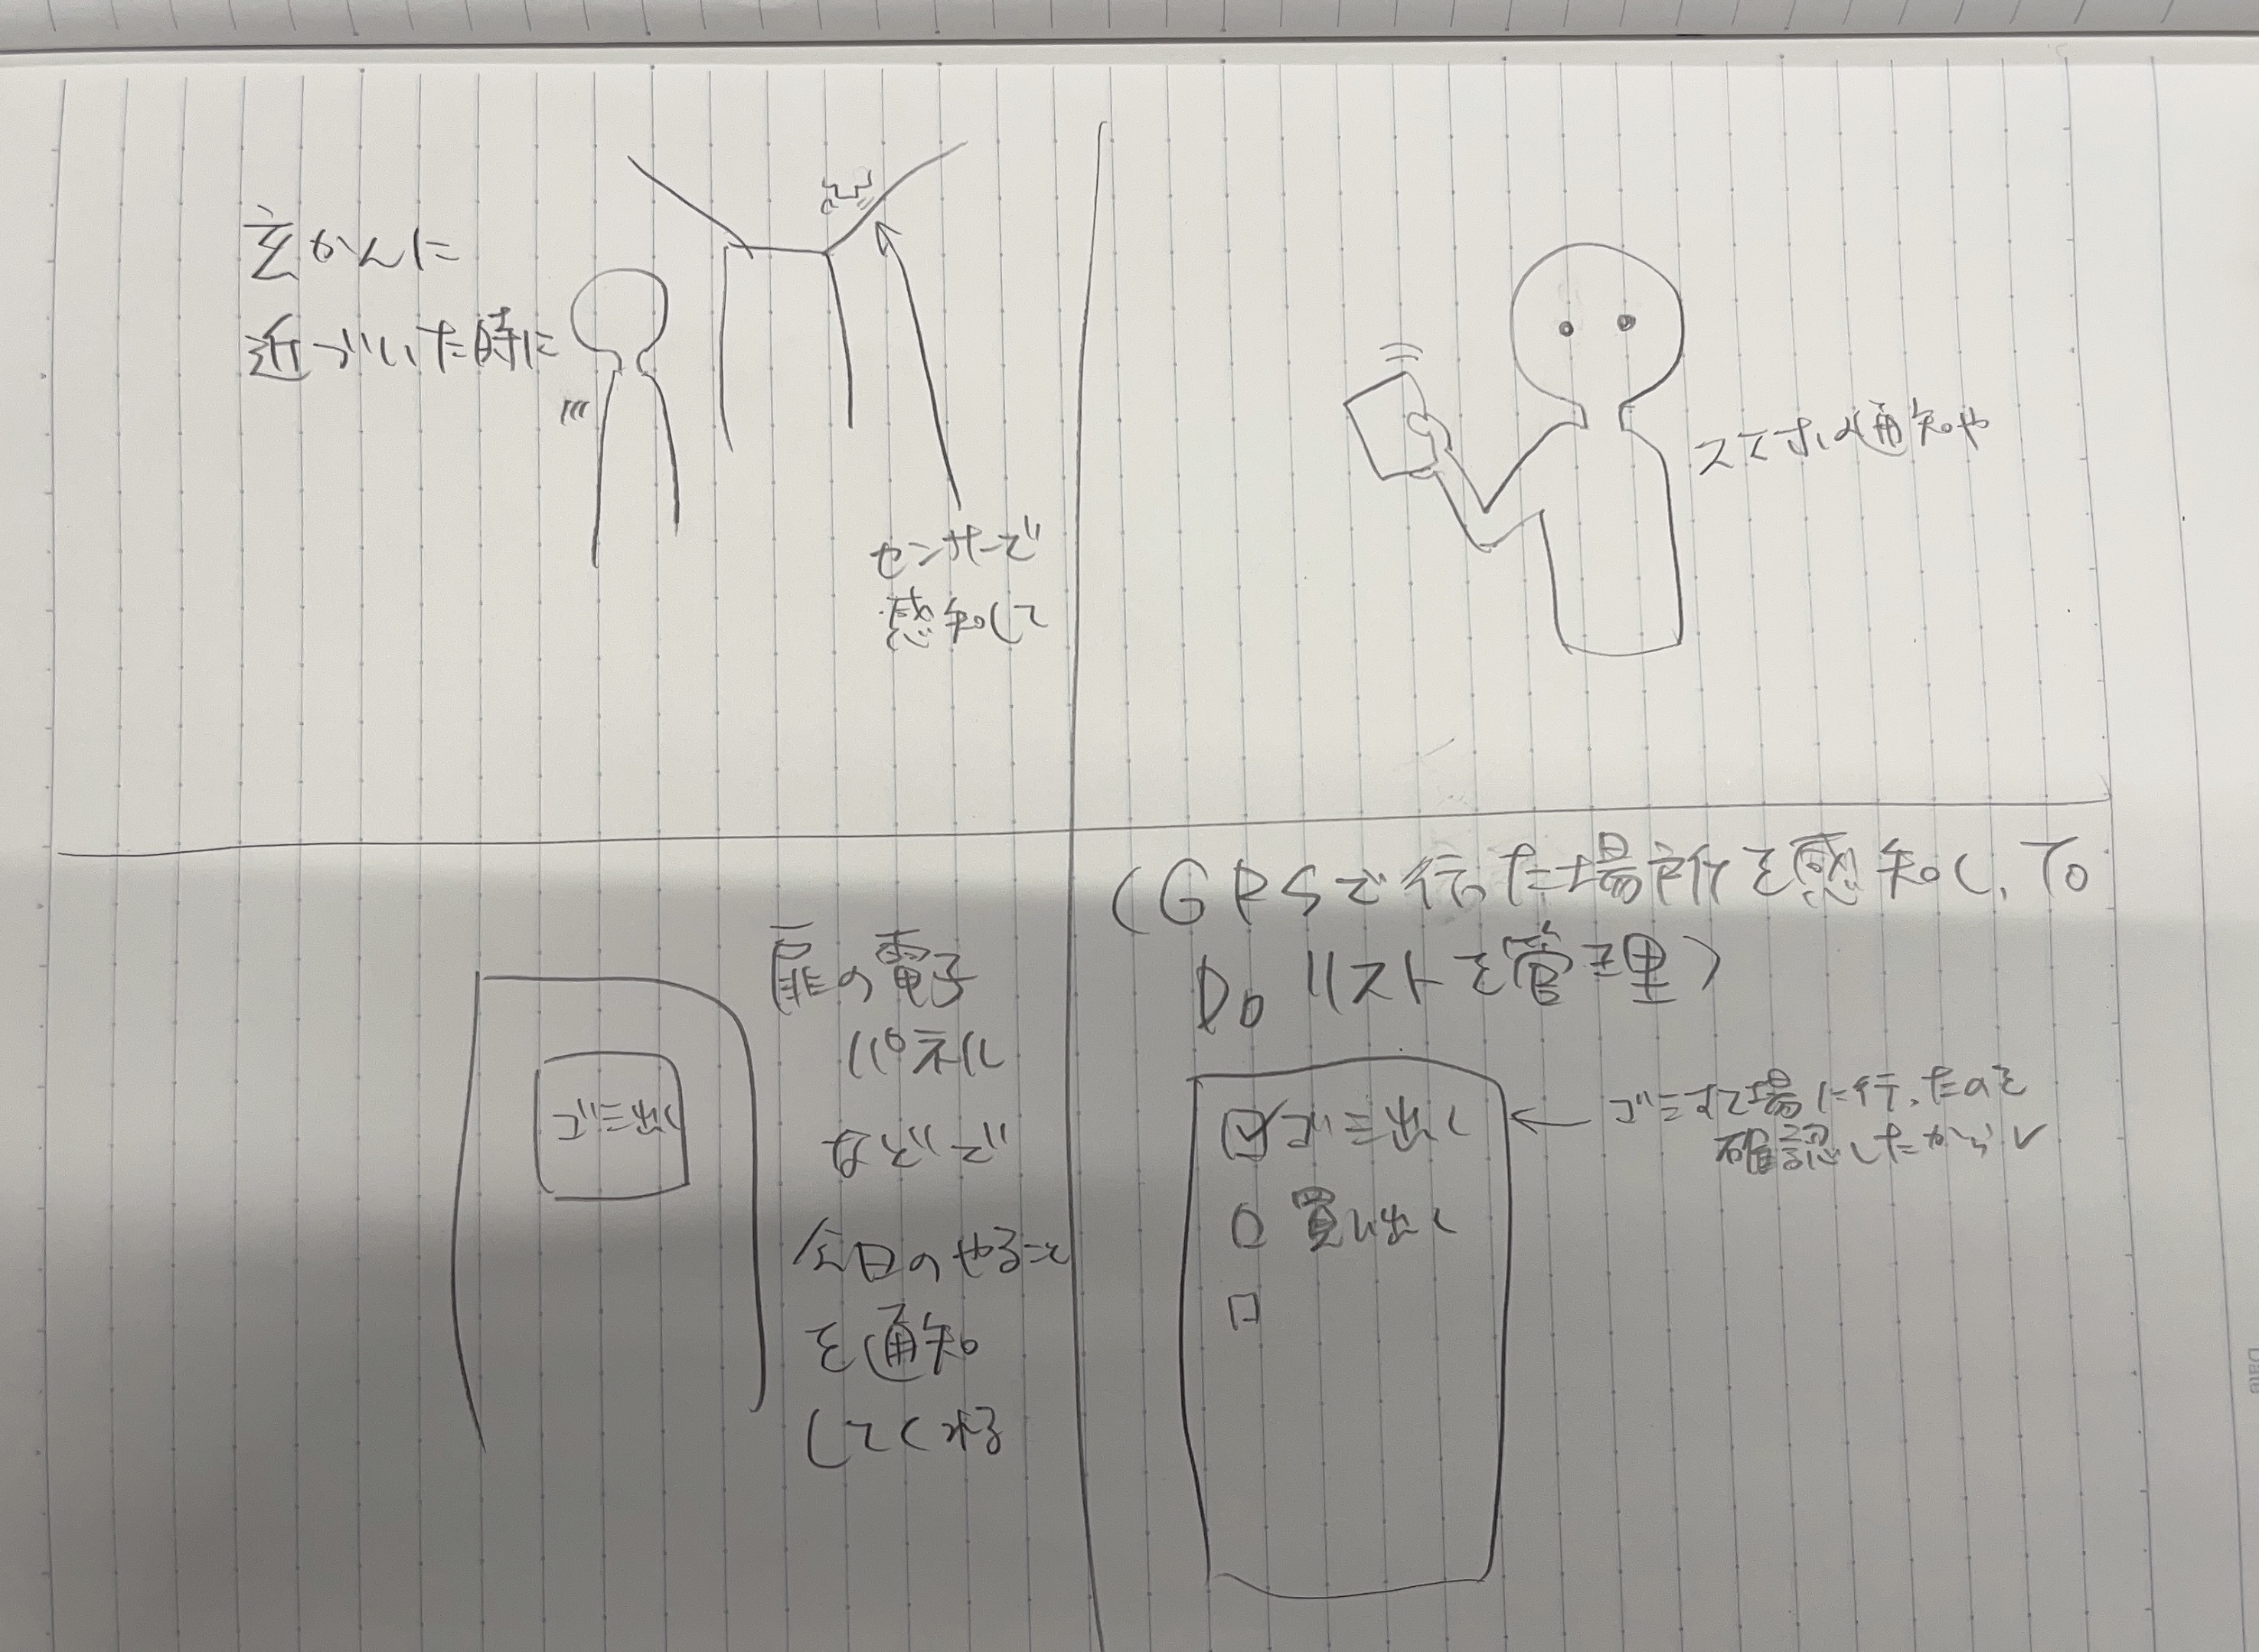 玄かんに
近づいた時に
センサーで
感知して
スマホの通知や
扉の電子
パネル
などで
今日のやること
を通知
してくれる
ゴミ出し
(GPSで行った場所を感知し、To
Do リストを管理)
☑ ゴミ出し
□ 買い出し
□
← ゴミすて場に行ったのを
確認したから✓
Date